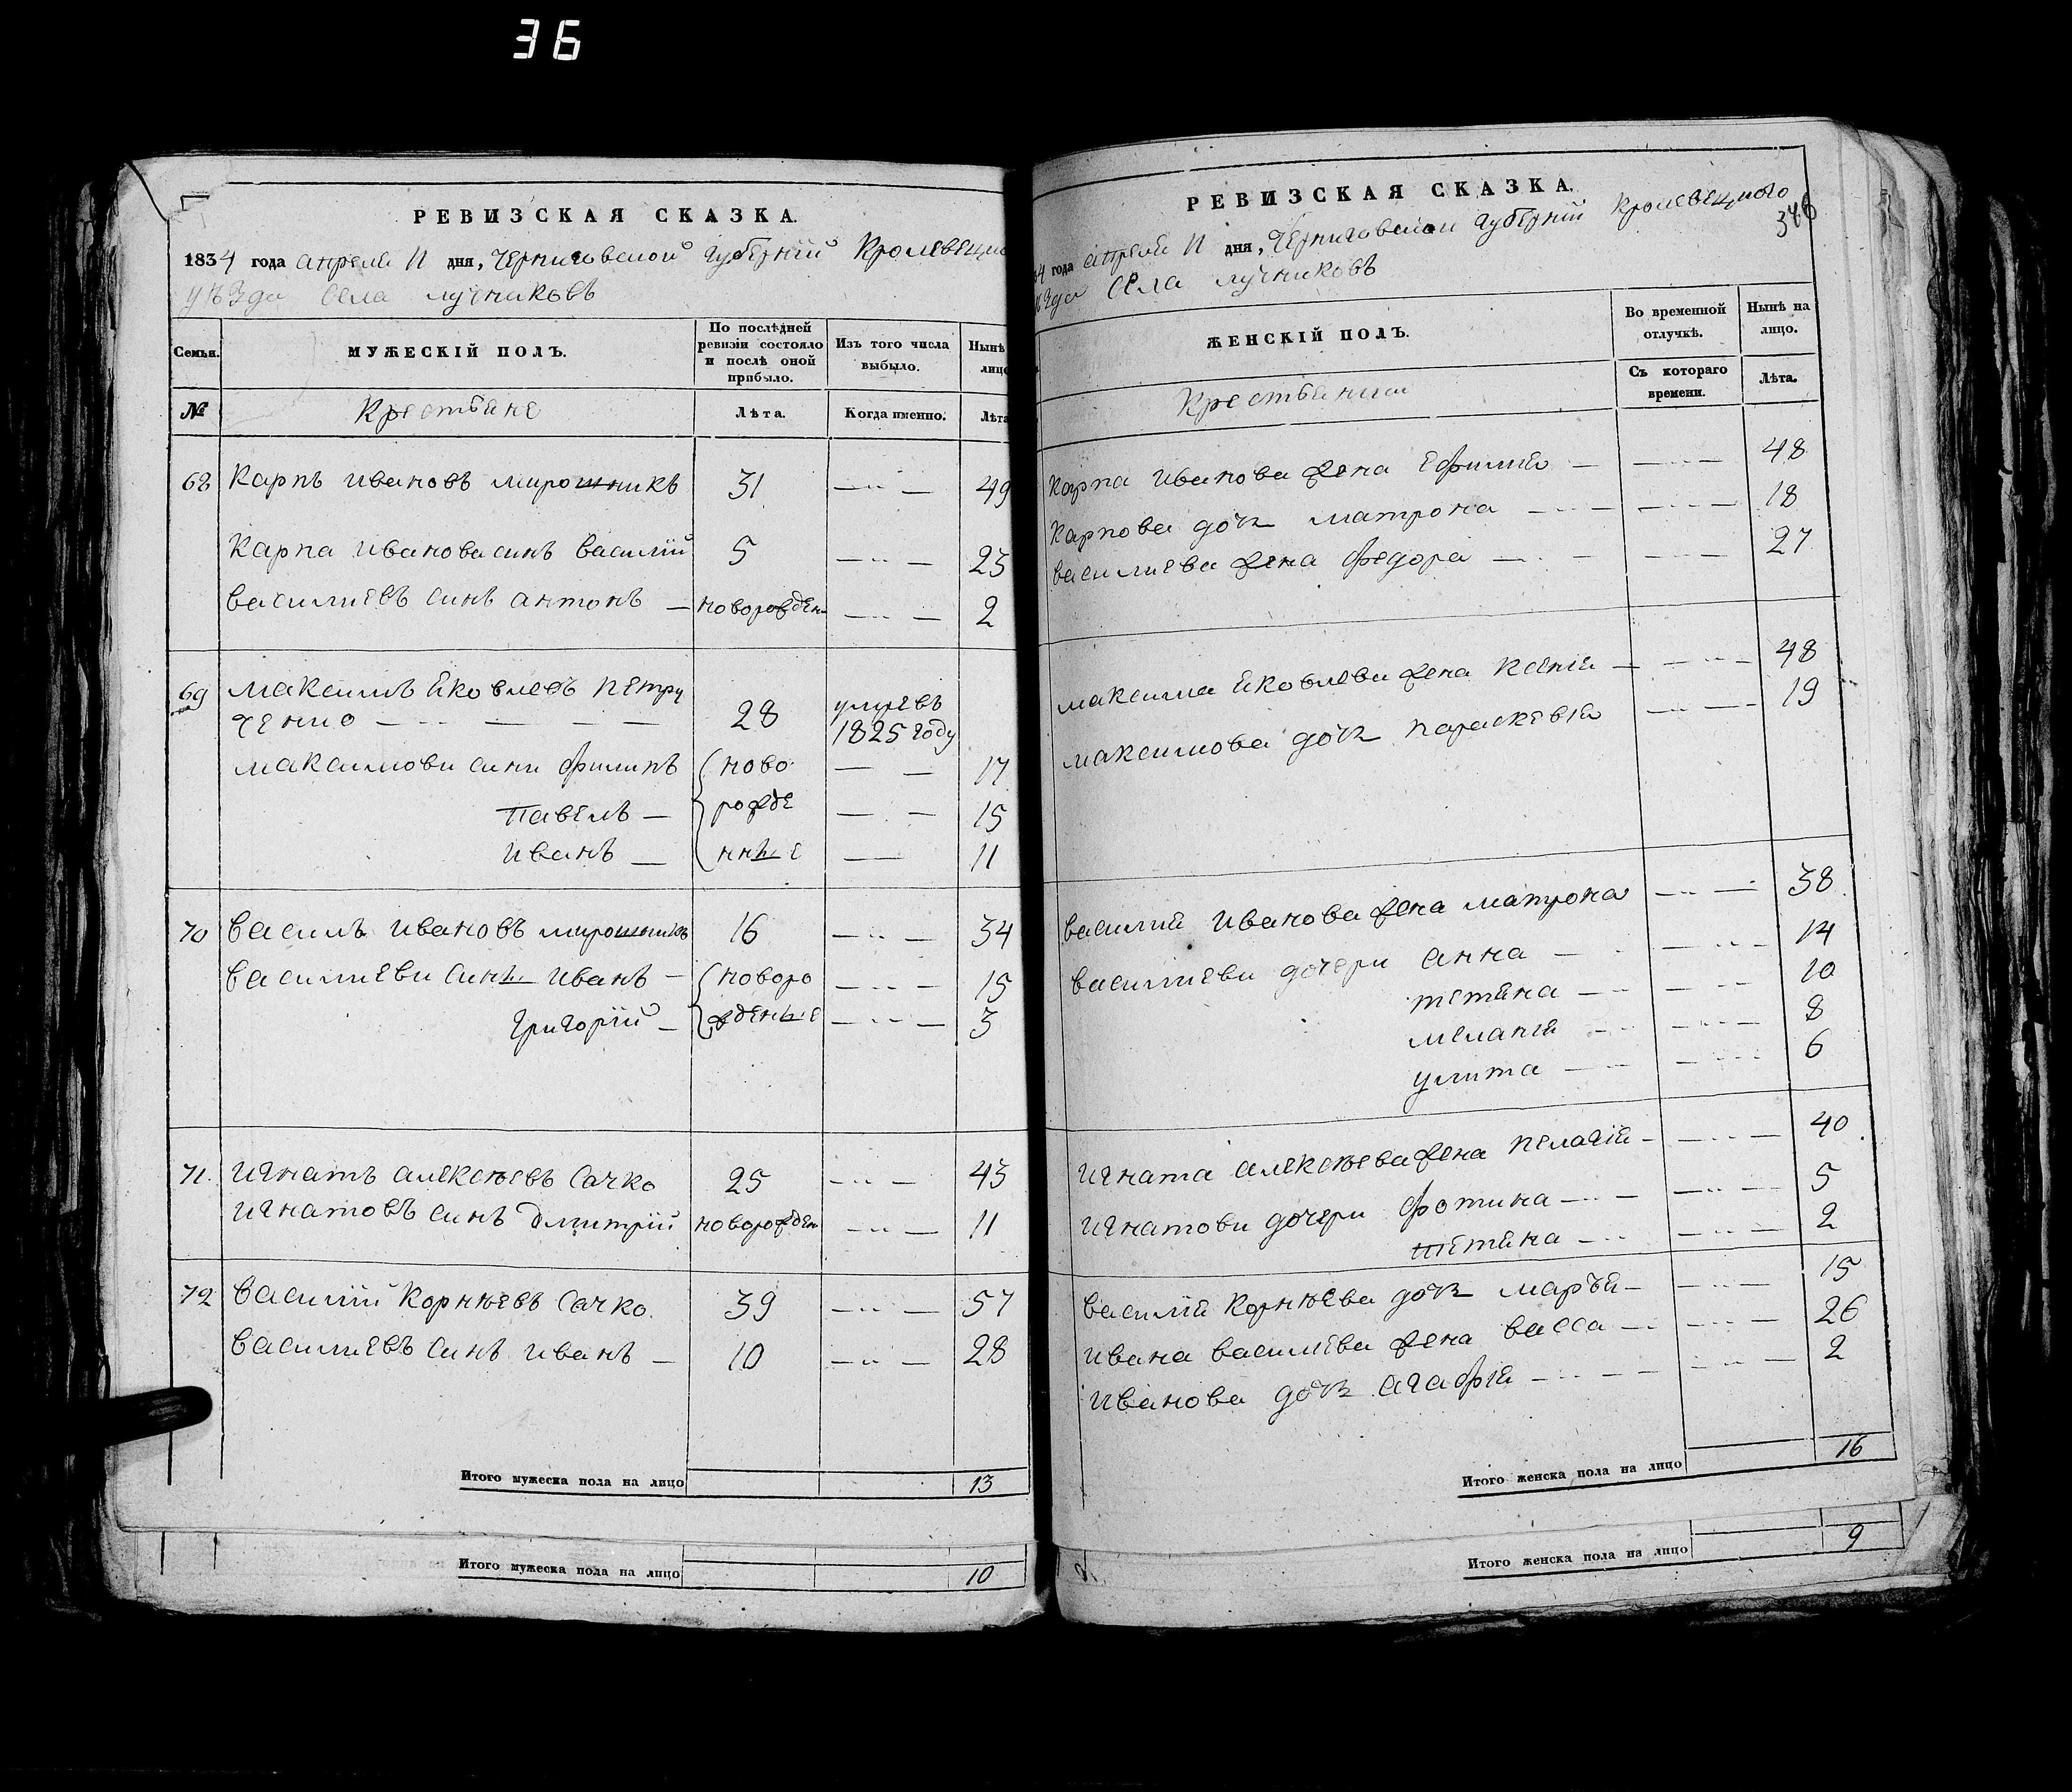 36
РЕВИЗСКАЯ СКАЗКА.
1834 года апреля 11 дня, Черниговской губерніи Кролевецко
уѣзда Села лучниковъ
Семьи.
МУЖЕСКІЙ ПОЛЪ.
По послѣдней ревизіи состояло и послѣ оной прибыло.
Изъ того числа выбыло.
Нынѣ лицо
№
Крестьяне
Лѣта.
Когда именно.
Лѣта
68 Карпъ ивановъ мирошникъ 31 49
Карпа иванова синъ василій 5 23
василиевъ синъ антонъ — новорожден 2
69 максимъ яковлевъ петру
ченко 28 умревъ 1825 году
максимови сини филипъ ново 17
павелъ — рожде 15
иванъ — нные 11
70 василь ивановъ мирошникъ 16 34
василиеви сины иванъ — новоро 15
григорій — жденые 3
71. игнатъ алексѣевъ сачко 25 43
игнатовъ синъ дмитрій новорожден 11
72 василій корнѣевъ сачко. 39 57
василиевъ синъ иванъ — 10 28
Итого мужеска пола на лицо 13
Итого мужеска пола на лицо 10
РЕВИЗСКАЯ СКАЗКА.
34 года апреля 11 дня, Черниговской губерніи кролевецкого
346
уѣзда Села лучниковъ
ЖЕНСКІЙ ПОЛЪ.
Во временной отлучкѣ.
Нынѣ на лицо.
Крестьянки
Съ котораго времени.
Лѣта.
карпа иванова жена ефимия — 48
карпова дочь матрона 18
василиева жена федора — 27
максима яковлева жена ксенія — 48
максимова дочь параскевія 19
василия иванова жена матрона 38
василиеви дочери анна — 14
тетяна — 10
меланія 8
улита — 6
игната алексѣева жена пелагія — 40
игнатови дочери фотина — 5
тетяна — 2
василия корнѣева дочь марья — 15
ивана василиева жена васса — 26
иванова дочь агафія — 2
Итого женска пола на лицо 16
Итого женска пола на лицо 9